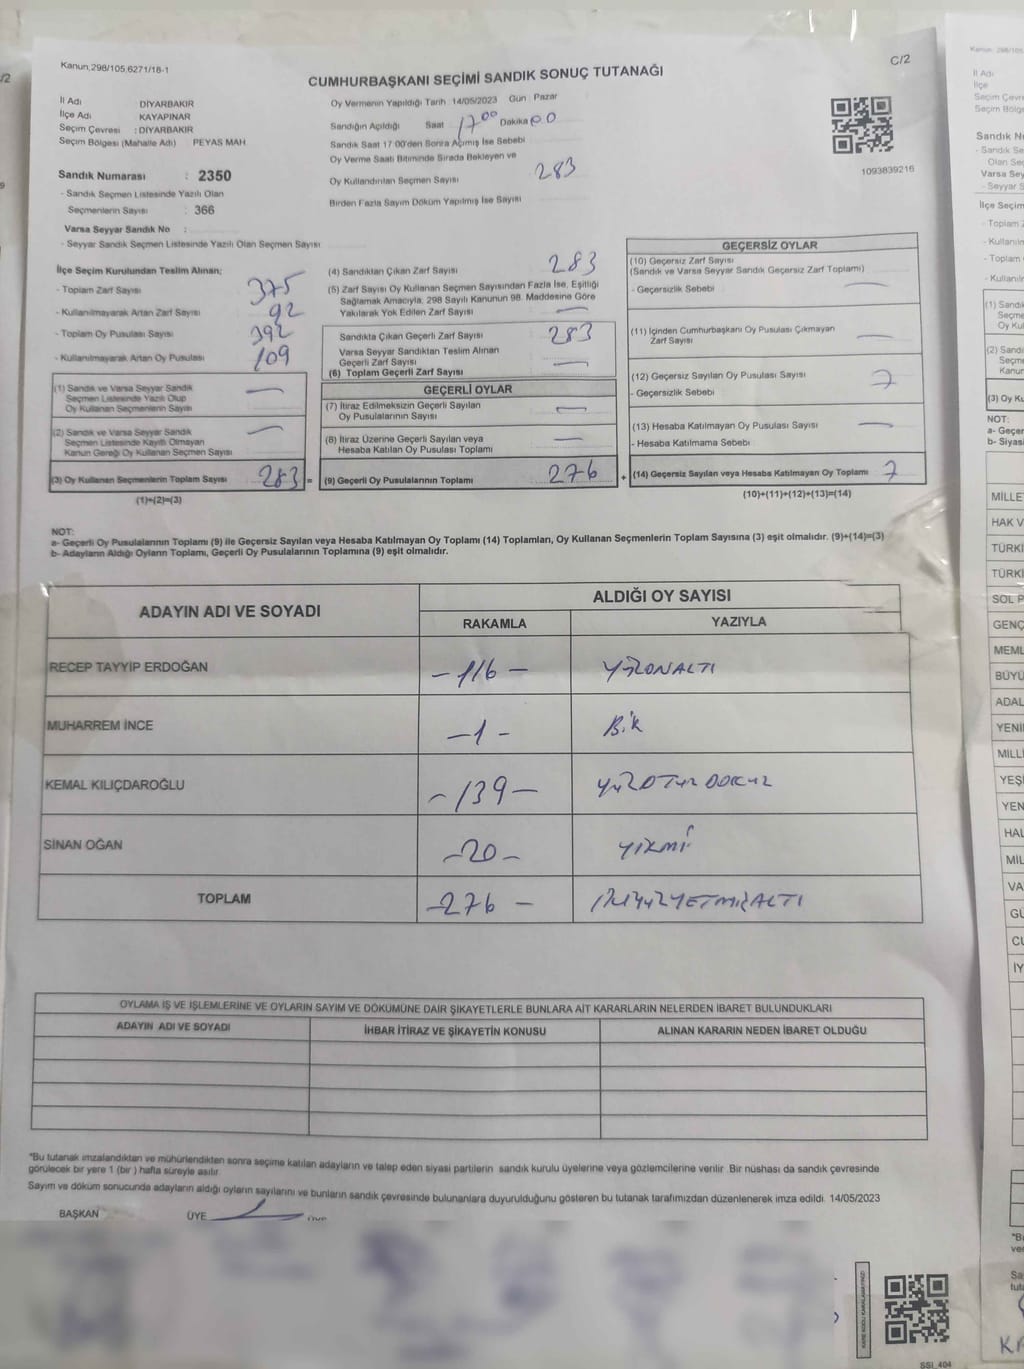 Kanun,298/105,6271/18-1
C/2
CUMHURBAŞKANI SEÇİMİ SANDIK SONUÇ TUTANAĞI
İl Adı DİYARBAKIR
İlçe Adı KAYAPINAR
Seçim Çevresi : DİYARBAKIR
Seçim Bölgesi (Mahalle Adı) PEYAS MAH.
Sandık Numarası : 2350
- Sandık Seçmen Listesinde Yazılı Olan
Seçmenlerin Sayısı : 366
Varsa Seyyar Sandık No :
- Seyyar Sandık Seçmen Listesinde Yazılı Olan Seçmen Sayısı
Oy Vermenin Yapıldığı Tarih 14/05/2023 Gün Pazar
Sandığın Açıldığı Saat 17 00 Dakika 00
Sandık Saat 17 00'den Sonra Açılmış İse Sebebi
Oy Verme Saati Bitiminde Sırada Bekleyen ve
Oy Kullandırılan Seçmen Sayısı 283
Birden Fazla Sayım Döküm Yapılmış İse Sayısı
1093839216
İlçe Seçim Kurulundan Teslim Alınan;
- Toplam Zarf Sayısı 375
- Kullanılmayarak Artan Zarf Sayısı 92
- Toplam Oy Pusulası Sayısı 392
- Kullanılmayarak Artan Oy Pusulası 109
(1) Sandık ve Varsa Seyyar Sandık
Seçmen Listesinde Yazılı Olup
Oy Kullanan Seçmenlerin Sayısı —
(2) Sandık ve Varsa Seyyar Sandık
Seçmen Listesinde Kayıtlı Olmayan
Kanun Gereği Oy Kullanan Seçmen Sayısı —
(3) Oy Kullanan Seçmenlerin Toplam Sayısı 283 =
(1)+(2)=(3)
(4) Sandıktan Çıkan Zarf Sayısı 283
(5) Zarf Sayısı Oy Kullanan Seçmen Sayısından Fazla İse, Eşitliği
Sağlamak Amacıyla, 298 Sayılı Kanunun 98. Maddesine Göre
Yakılarak Yok Edilen Zarf Sayısı —
Sandıkta Çıkan Geçerli Zarf Sayısı 283
Varsa Seyyar Sandıktan Teslim Alınan
Geçerli Zarf Sayısı —
(6) Toplam Geçerli Zarf Sayısı
GEÇERLİ OYLAR
(7) İtiraz Edilmeksizin Geçerli Sayılan
Oy Pusulalarının Sayısı —
(8) İtiraz Üzerine Geçerli Sayılan veya
Hesaba Katılan Oy Pusulası Toplamı —
(9) Geçerli Oy Pusulalarının Toplamı 276 +
GEÇERSİZ OYLAR
(10) Geçersiz Zarf Sayısı
(Sandık ve Varsa Seyyar Sandık Geçersiz Zarf Toplamı)
- Geçersizlik Sebebi —
(11) İçinden Cumhurbaşkanı Oy Pusulası Çıkmayan
Zarf Sayısı —
(12) Geçersiz Sayılan Oy Pusulası Sayısı 7
- Geçersizlik Sebebi
(13) Hesaba Katılmayan Oy Pusulası Sayısı —
- Hesaba Katılmama Sebebi
(14) Geçersiz Sayılan veya Hesaba Katılmayan Oy Toplamı 7
(10)+(11)+(12)+(13)=(14)
NOT:
a- Geçerli Oy Pusulalarının Toplamı (9) ile Geçersiz Sayılan veya Hesaba Katılmayan Oy Toplamı (14) Toplamları, Oy Kullanan Seçmenlerin Toplam Sayısına (3) eşit olmalıdır. (9)+(14)=(3)
b- Adayların Aldığı Oyların Toplamı, Geçerli Oy Pusulalarının Toplamına (9) eşit olmalıdır.
ADAYIN ADI VE SOYADI
ALDIĞI OY SAYISI
RAKAMLA YAZIYLA
RECEP TAYYİP ERDOĞAN -116- YÜZONALTI
MUHARREM İNCE -1- BİR
KEMAL KILIÇDAROĞLU -139- YÜZOTUZDOKUZ
SİNAN OĞAN -20- YİRMİ
TOPLAM -276- İKİYÜZYETMİŞALTI
OYLAMA İŞ VE İŞLEMLERİNE VE OYLARIN SAYIM VE DÖKÜMÜNE DAİR ŞİKAYETLERLE BUNLARA AİT KARARLARIN NELERDEN İBARET BULUNDUKLARI
ADAYIN ADI VE SOYADI İHBAR İTİRAZ VE ŞİKAYETİN KONUSU ALINAN KARARIN NEDEN İBARET OLDUĞU
*Bu tutanak imzalandıktan ve mühürlendikten sonra seçime katılan adayların ve talep eden siyasi partilerin sandık kurulu üyelerine veya gözlemcilerine verilir. Bir nüshası da sandık çevresinde
görülecek bir yere 1 (bir ) hafta süreyle asılır.
Sayım ve döküm sonucunda adayların aldığı oyların sayılarını ve bunların sandık çevresinde bulunanlara duyurulduğunu gösteren bu tutanak tarafımızdan düzenlenerek imza edildi. 14/05/2023
BAŞKAN ÜYE
SSI_404